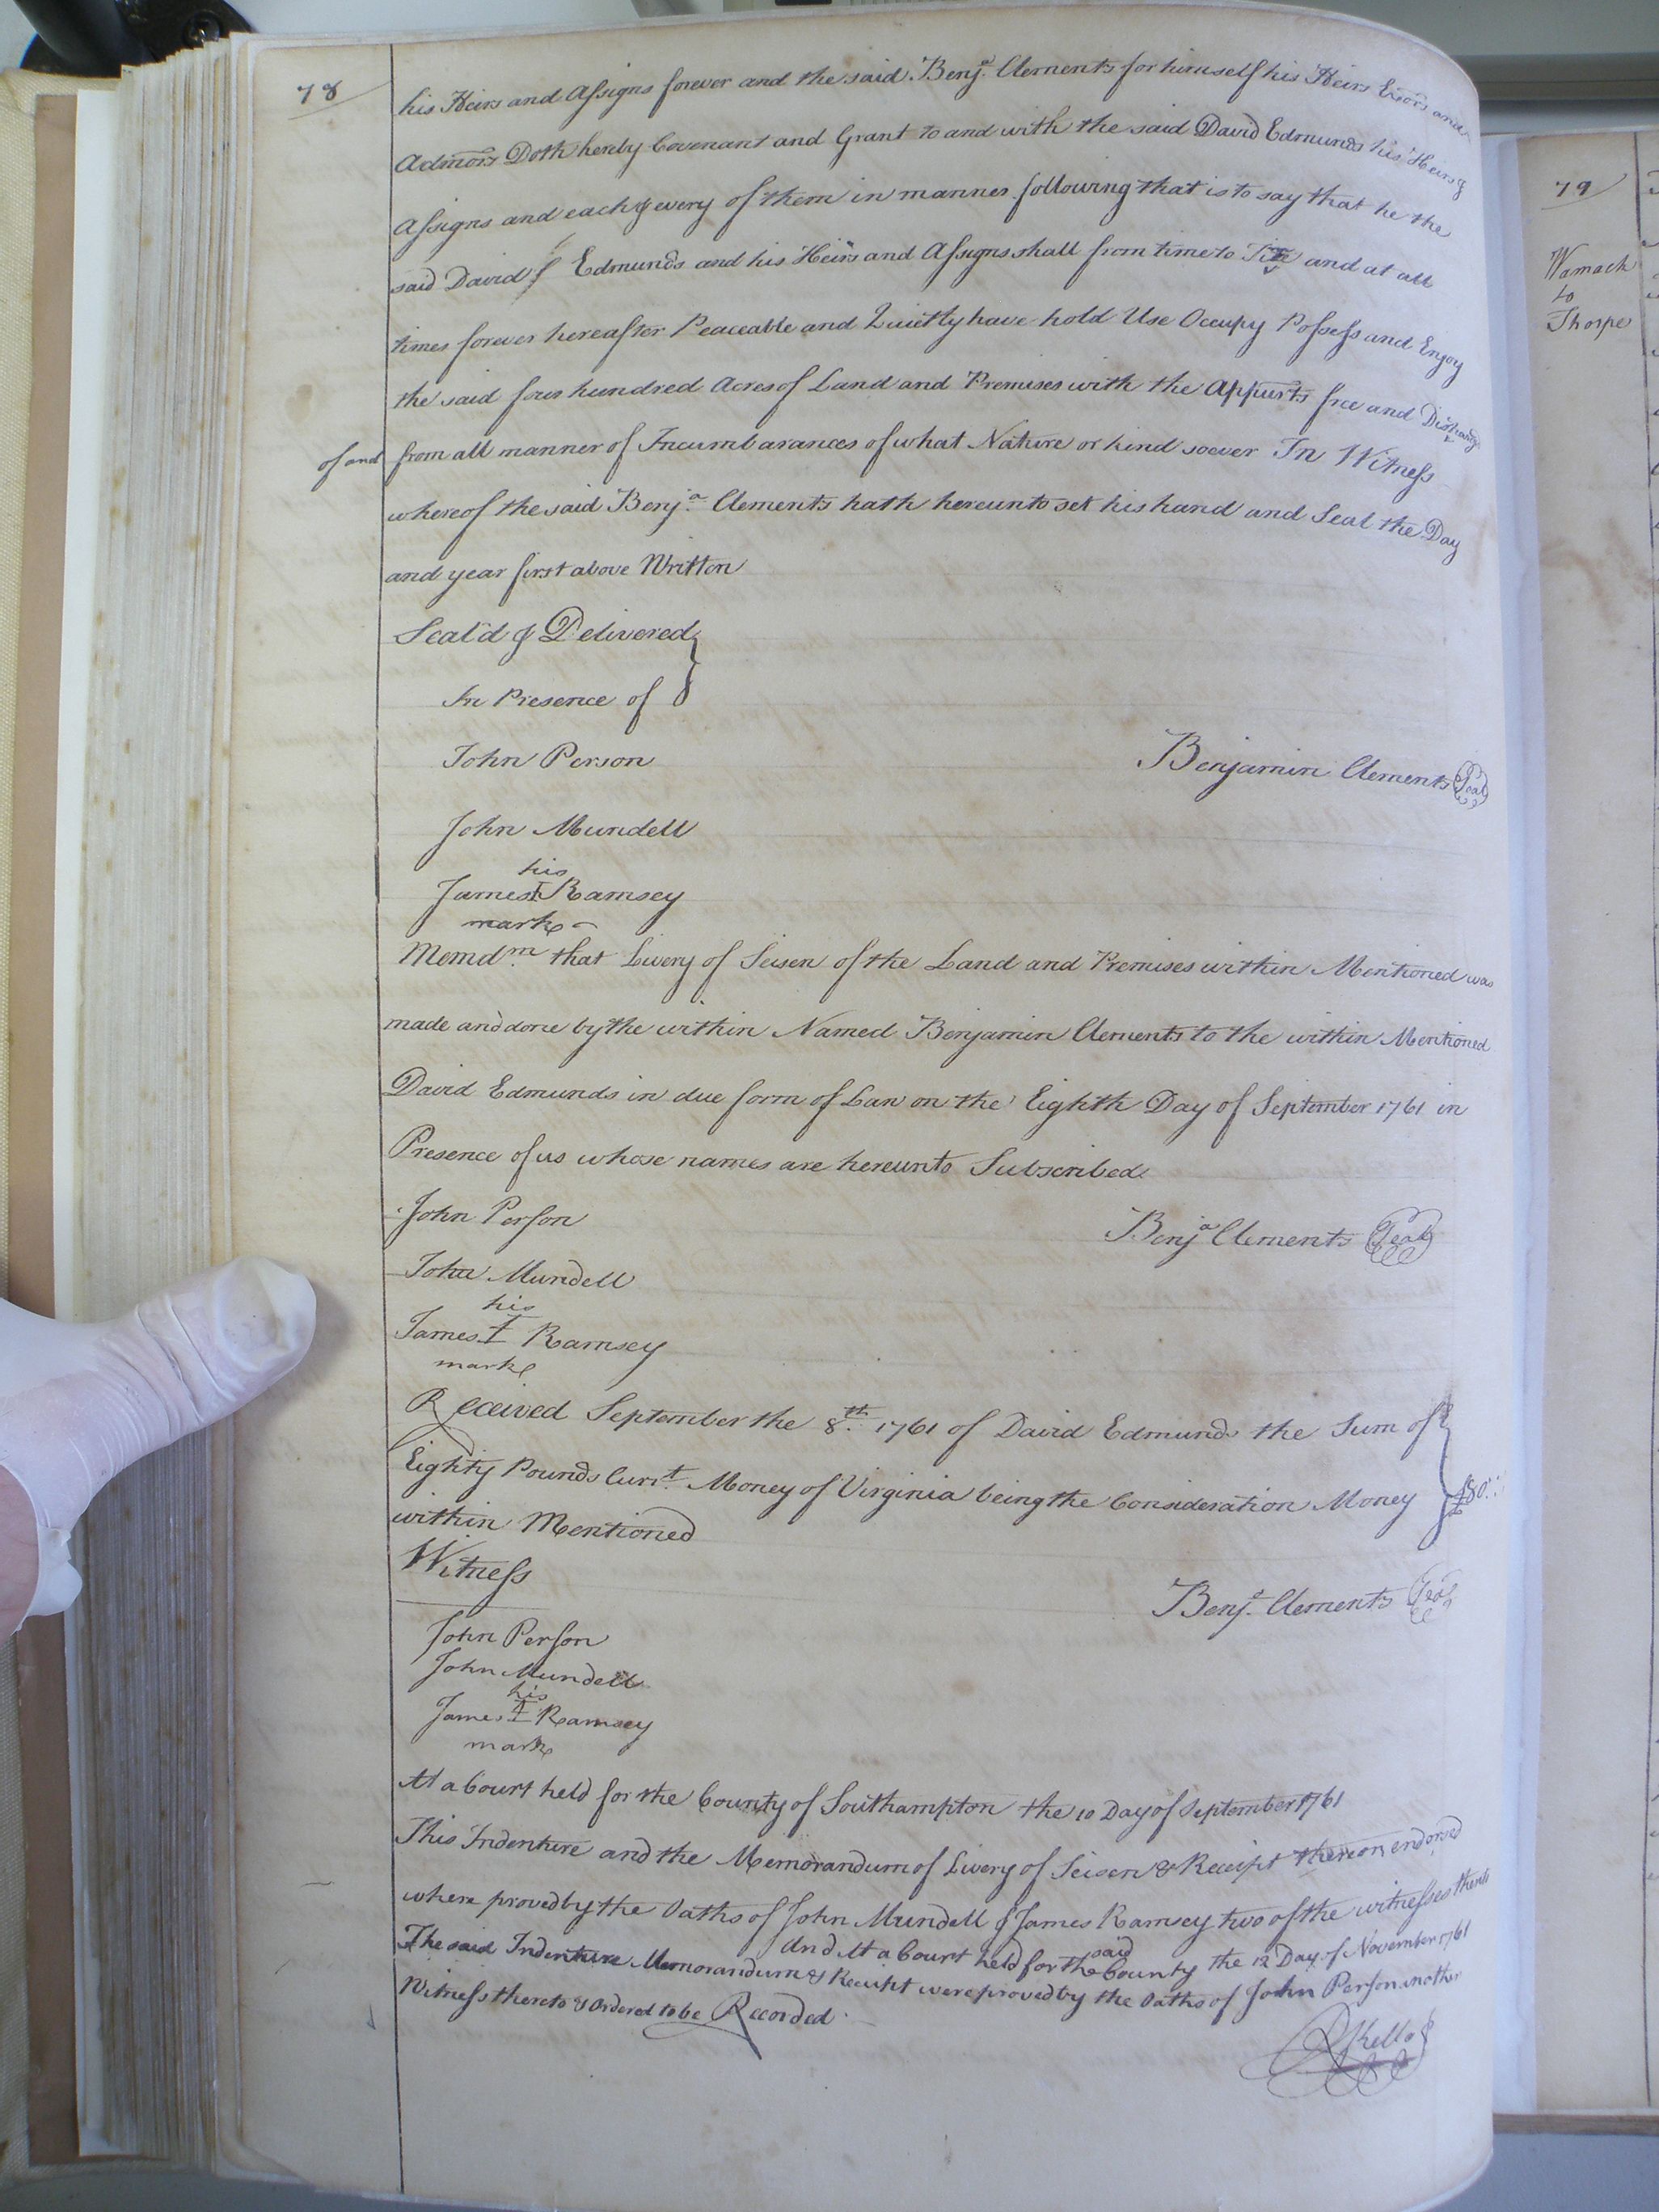 78
his Heirs and Assigns forever and the said Benja. Clements for himself his Heirs Exors and
Admors Doth hereby Covenant and Grant to and with the said David Edmunds his Heirs &
Assigns and each & every of them in manner following that is to say that he the
said David Edmunds and his Heirs and Assigns shall from time to Time and at all
times forever hereafter Peaceable and Quietly have hold Use Occupy Possess and Enjoy
the said four hundred Acres of Land and Premises with the Appurts free and Discharg
of and from all manner of Incumbarances of what Nature or kind soever In Witness
whereof the said Benja. Clements hath hereunto set his hand and Seal the Day
and year first above Written
Seal'd & Delivered
In Presence of
John Person
Benjamin Clements Seal
John Mundell
his
James I Ramsey
mark
Memdm. that Livery of Seisen of the Land and Premises within Mentioned was
made and done by the within Named Benjamin Clements to the within Mentioned
David Edmunds in due form of Law on the Eighth Day of September 1761 in
Presence of us whose names are hereunto Subscribed
John Person
Benja Clements Seal
John Mundell
his
James I Ramsey
mark
Received September the 8th. 1761 of David Edmunds the Sum of
Eighty Pounds Currt. Money of Virginia being the Consideration Money £80..
within Mentioned
Witness
Benja. Clements Seal
John Person
John Mundell
his
James I Ramsey
mark
At a Court held for the County of Southampton the 10 Day of September 1761
This Indenture and the Memorandum of Livery of Seisen & Receipt thereon endorsed
where proved by the Oaths of John Mundell & James Ramsey two of the witnesses thereto
And At a Court held for the said County the 12 Day of November 1761
The said Indenture Memorandum & Receipt were proved by the Oaths of John Person another
Witness thereto & Ordered to be Recorded
R Kello
79
Wamack
to
Thorpe